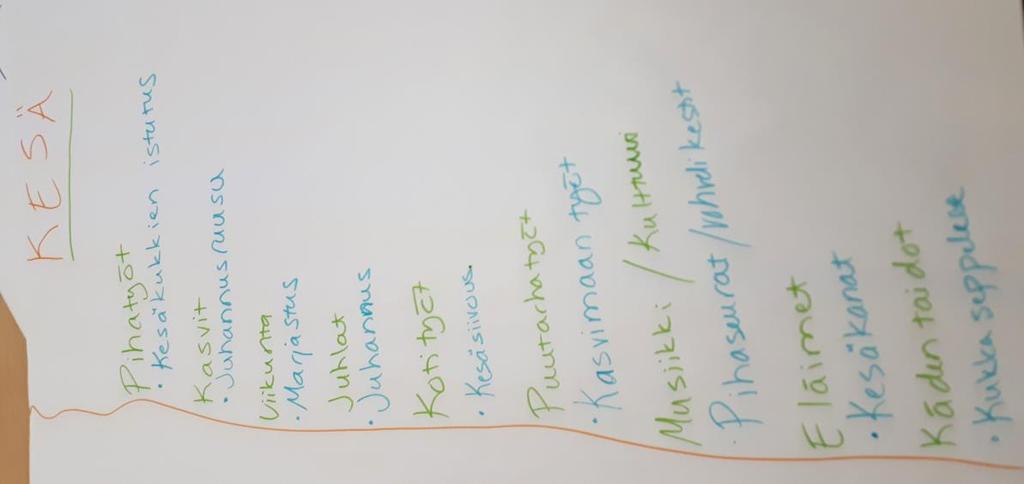 KESÄ
Pihatyöt
• Kesäkukkien istutus
Kasvit
• Juhannusruusu
Liikunta
• Marjastus
Juhlat
• Juhannus
Kotityöt
• Kesäsiivous.
Puutarhatyöt
• Kasvimaan työt
Musiikki / Kulttuuri
• Pihaseurat /
Eläimet
• Kesäkanat
Käden taidot
• Kukkaseppeleet